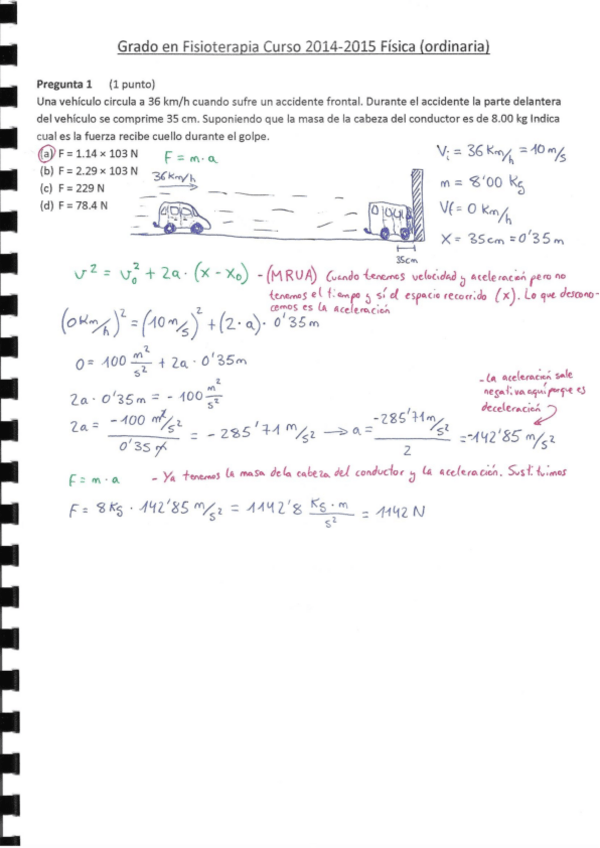 Grado en Fisioterapia Curso 2014-2015 Física (ordinaria)
Pregunta 1 (1 punto)
Una vehículo circula a 36 km/h cuando sufre un accidente frontal. Durante el accidente la parte delantera
del vehículo se comprime 35 cm. Suponiendo que la masa de la cabeza del conductor es de 8.00 kg Indica
cual es la fuerza recibe cuello durante el golpe.
(a) F = 1.14 × 103 N
(b) F = 2.29 × 103 N
(c) F = 229 N
(d) F = 78.4 N
F = m·a
36 Km/h
35cm
Vi = 36 Km/h = 10 m/s
m = 8'00 Kg
Vf = 0 Km/h
X = 35cm = 0'35 m
v² = v₀² + 2a · (x - x₀) - (MRUA) Cuando tenemos velocidad y aceleración pero no
tenemos el tiempo y sí el espacio recorrido (x). Lo que descono-
cemos es la aceleración
(0 Km/h)² = (10 m/s)² + (2·a)· 0'35 m
0 = 100 m²/s² + 2a · 0'35m
2a · 0'35 m = - 100 m²/s²
2a = -100 m²/s² / 0'35 m = - 285'71 m/s² → a = -285'71 m/s² / 2 = -142'85 m/s²
- La aceleración sale
negativa aquí porque es
deceleración
F = m·a - Ya tenemos la masa de la cabeza del conductor y la aceleración. Sustituimos
F = 8 Kg · 142'85 m/s² = 1142'8 Kg·m/s² = 1142 N